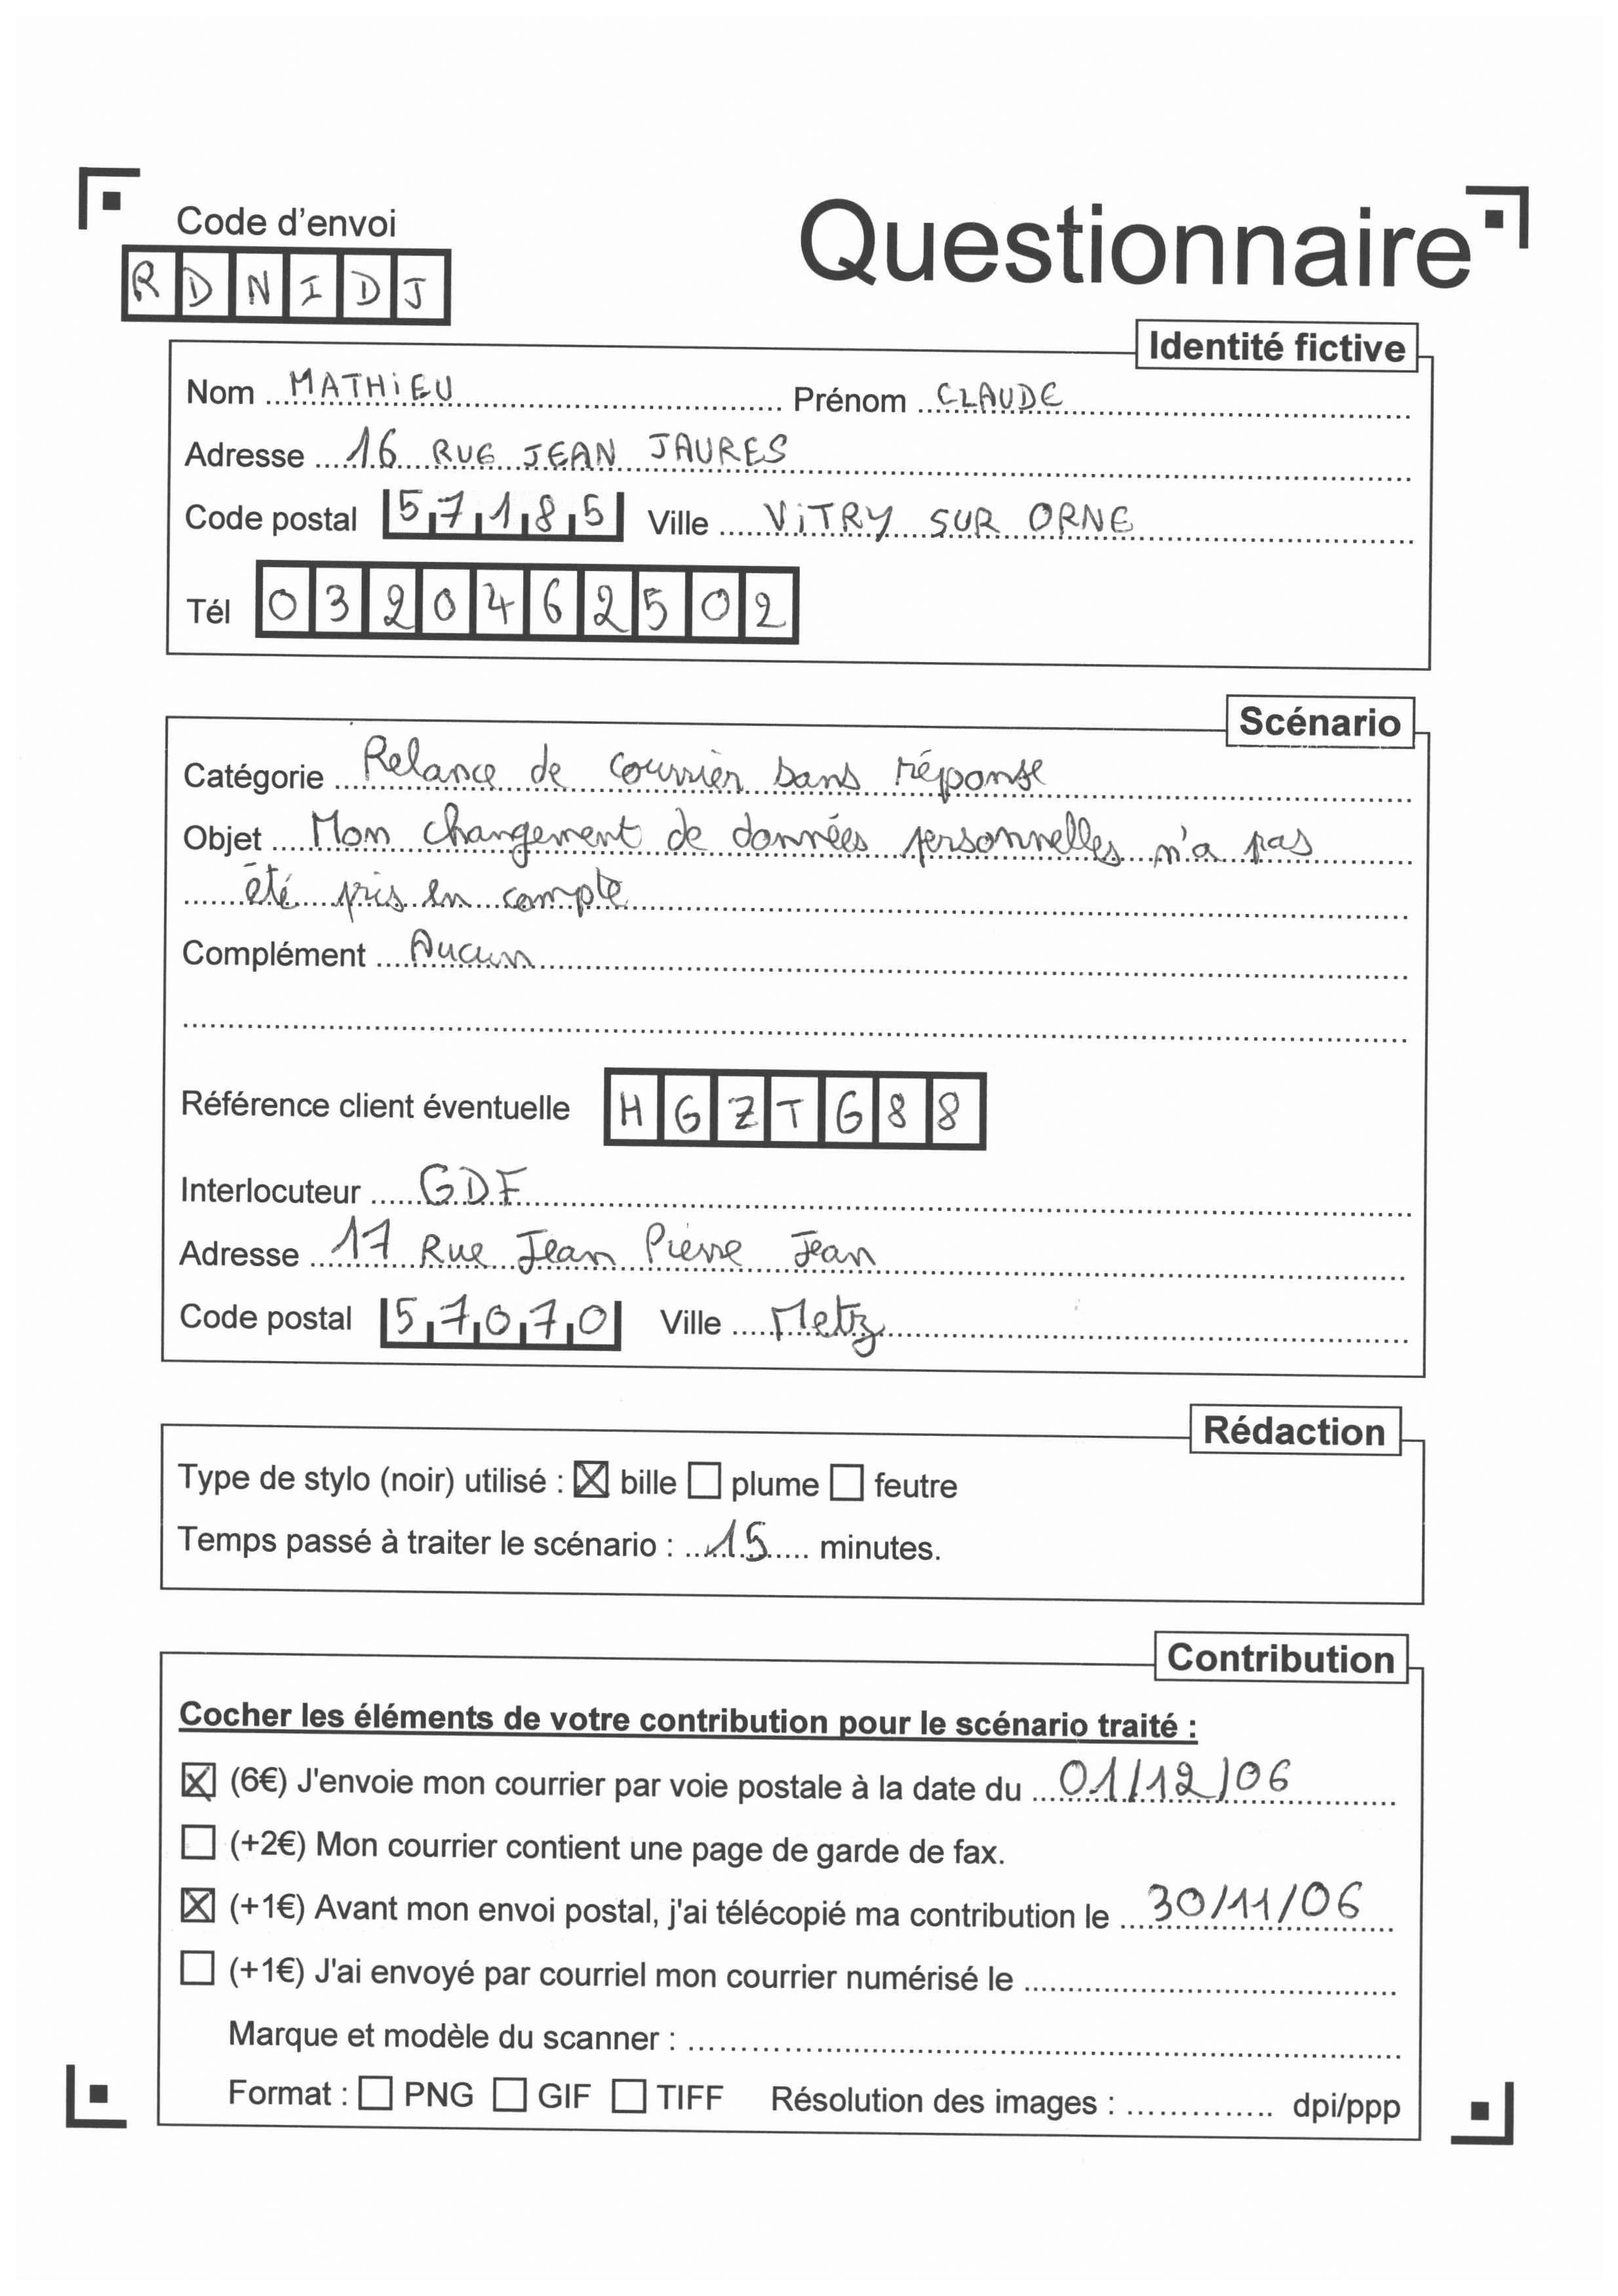 Questionnaire
Code d'envoi
RDNIDJ
Identité fictive
Nom MATHIEU Prénom CLAUDE
Adresse 16 RUE JEAN JAURES
Code postal 57185 Ville VITRY SUR ORNE
Tél 0320462502
Scénario
Catégorie Relance de courrier sans réponse
Objet Mon changement de données personnelles n'a pas
été pris en compte
Complément Aucun
Référence client éventuelle HGZTG88
Interlocuteur GDF
Adresse 17 Rue Jean Pierre Jean
Code postal 57070 Ville Metz
Rédaction
Type de stylo (noir) utilisé : ☒ bille ☐ plume ☐ feutre
Temps passé à traiter le scénario : 15 minutes.
Contribution
Cocher les éléments de votre contribution pour le scénario traité :
☒ (6€) J'envoie mon courrier par voie postale à la date du 01/12/06
☐ (+2€) Mon courrier contient une page de garde de fax.
☒ (+1€) Avant mon envoi postal, j'ai télécopié ma contribution le 30/11/06
☐ (+1€) J'ai envoyé par courriel mon courrier numérisé le
Marque et modèle du scanner :
Format : ☐ PNG ☐ GIF ☐ TIFF Résolution des images : dpi/ppp